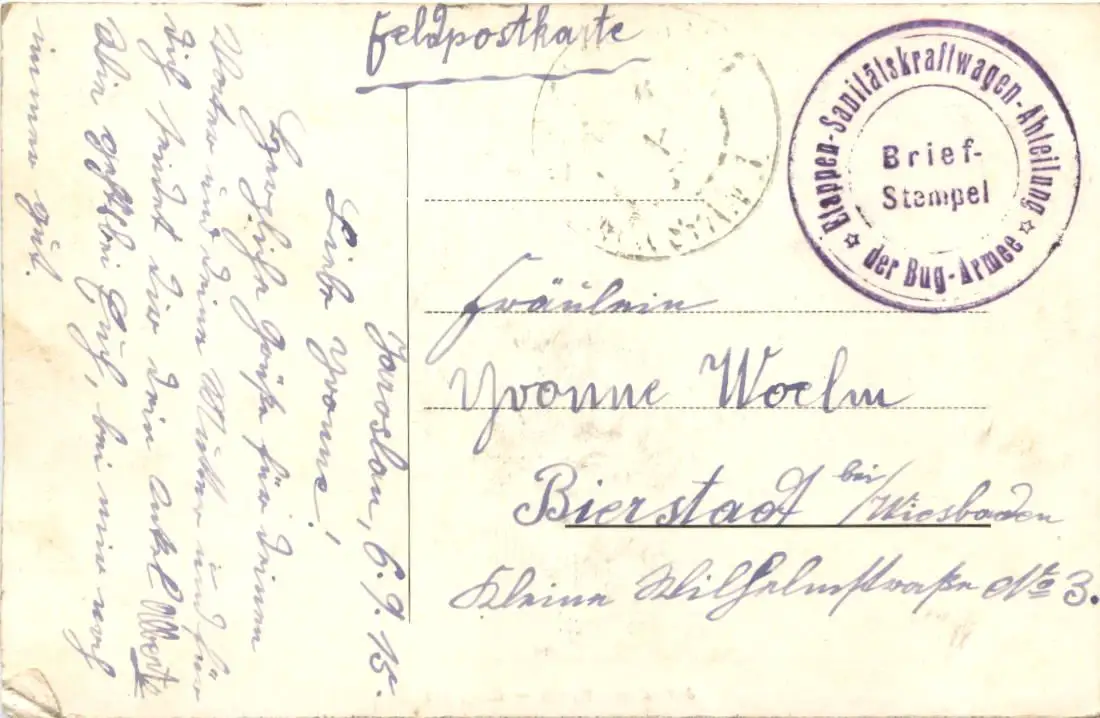 Feldpostkarte
Etappen-Sanitätskraftwagen-Abteilung
der Bug-Armee
Brief-
Stempel
Jaroslau, 6.9.15.
Liebe Yvonne!
Herzliche Grüße für deinen
Vater und deine Mutter und für
dich sendet dir dein Onkel Albert
Wie gehts bei Euch, bei mir noch
immer gut.
Fräulein
Yvonne Woelm
Bierstadt bei/Wiesbaden
Kleine Wilhelmstraße No 3.